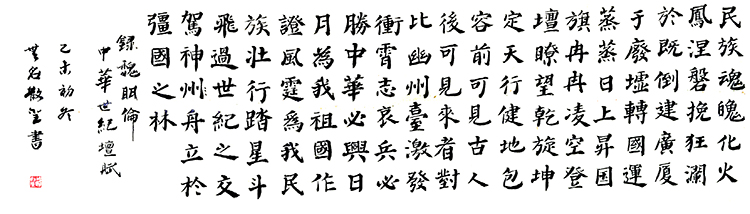 民族魂魄化火
鳳涅磐挽狂瀾
於既倒建廣厦
于廢墟轉國運
蒸蒸日上昇国
旗冉冉凌空登
壇瞭望乾旋坤
定天行健地包
容前可見古人
後可見來者對
比幽州臺激發
衝霄志哀兵必
勝中華必興日
月為我祖國作
證風霆爲我民
族壯行踏星斗
飛過世紀之交
駕神州舟立於
彊國之林
録魏明倫
中華世紀壇賦
乙未初冬
書